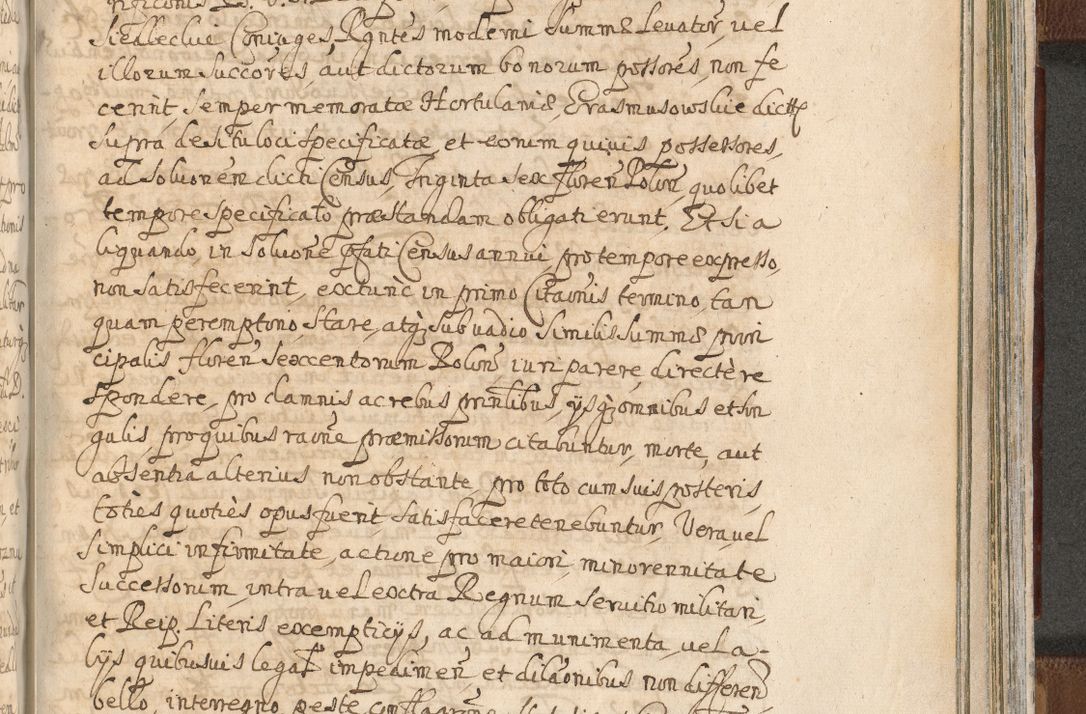 Siedleckie Coniuges, Rgntes moderni summæ Levator, vel
illorum Succores aut dictorum bonorum possores, non fe
cerint, Semper memoratæ Hortulaniæ, Erasmusowskie dictæ
supra de situ loci specificatæ, et eorum quivis possessores,
ad Soluonem dicti Census, Triginta sex floren Polon, quolibet
tempore specificato præstandam obligati erunt. Et si a
liquando, in Soluone pfati Census annui, pro tempore expresso,
non satisfecerint, extunc in primo Citaonis termino, tan
quam peremptorio stare, atq sub vadio similis summæ prin
cipalis floren Sexcentorum Polon, iuri parere, directè re
spondere, pro damnis ac rebus prinlibus, ijsq omnibus et sin
gulis, pro quibus raone præmissorum citabuntur, morte, aut
absentia alterius non obstante, pro toto cum suis posteris
toties quoties opus fuerit satisfacere tenebuntur, Vera vel
simplici infirmitate, actione pro maiori, minorennitate
Successorum, intra vel extra Regnum servitio militari,
et Reip. Literis exempticijs, ac ad munimenta, vel a-
lijs quibusvis legal impedimen, et dilaonibus non differen
bello, interregno peste conflagraone